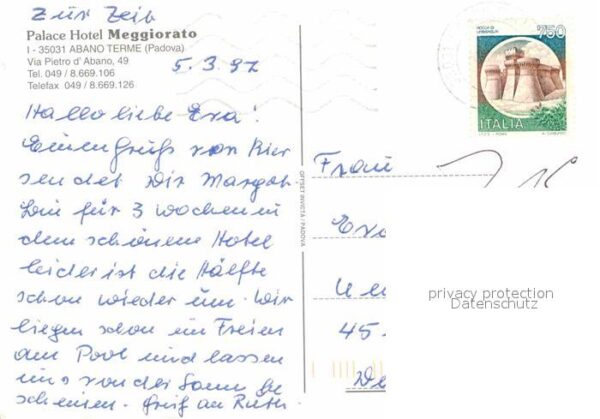 Zur Zeit
Palace Hotel Meggiorato
I - 35031 ABANO TERME (Padova)
Via Pietro d' Abano, 49
Tel. 049 / 8.669.106
Telefax 049 / 8.669.126
5.3.97
Hallo liebe Eva!
Einen Gruß von hier
sendet Dir Margot.
Bin für 3 Wochen in
dem schönen Hotel
leider ist die Hälfte
schon wieder um. Wir
liegen schon im Freien
am Pool und lassen
uns von der Sonne be
scheinen. Gruß an Ruth
OFFSET INVICTA / PADOVA
ROCCA DI URBISAGLIA
750
ITALIA
Frau
45
privacy protection
Datenschutz